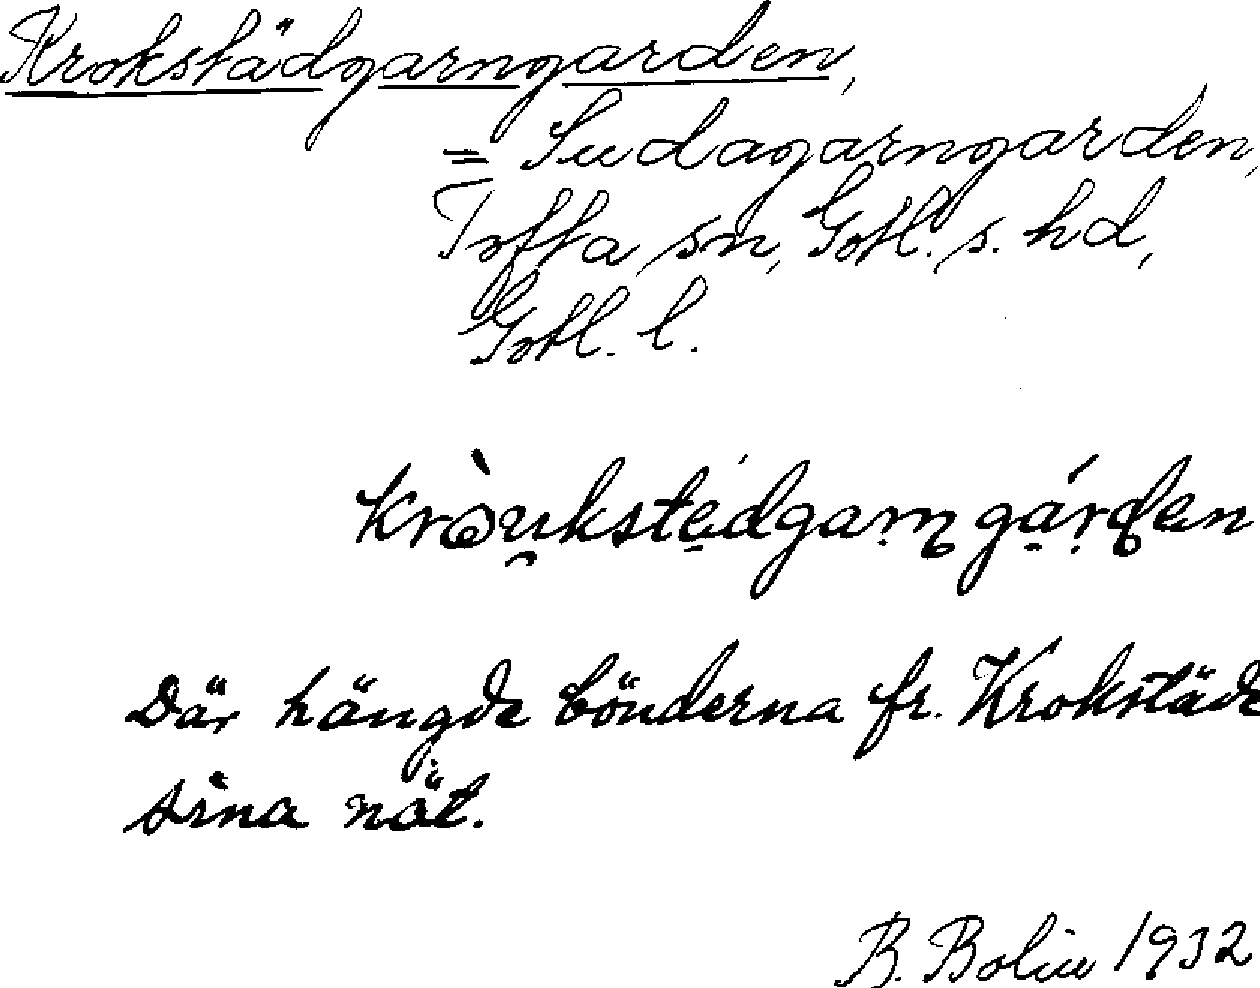 Krokstädgarngarden,
= Sudagarngarden,
Tofta sn, Gotl. s. hd,
Gotl. l.
Där hängde bönderna fr. Krokstäde
sina nät.
B. Bolin 1932